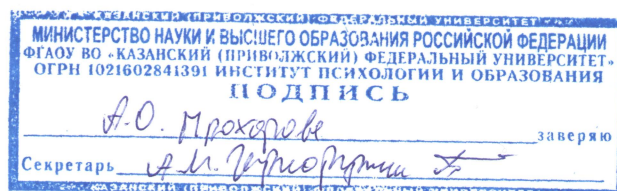 КАЗАНСКИЙ (ПРИВОЛЖСКИЙ) ФЕДЕРАЛЬНЫЙ УНИВЕРСИТЕТ
МИНИСТЕРСТВО НАУКИ И ВЫСШЕГО ОБРАЗОВАНИЯ РОССИЙСКОЙ ФЕДЕРАЦИИ
ФГАОУ ВО «КАЗАНСКИЙ (ПРИВОЛЖСКИЙ) ФЕДЕРАЛЬНЫЙ УНИВЕРСИТЕТ»
ОГРН 1021602841391 ИНСТИТУТ ПСИХОЛОГИИ И ОБРАЗОВАНИЯ
ПОДПИСЬ
А.О. Прохорова заверяю
Секретарь А.М.
КАЗАНСКИЙ (ПРИВОЛЖСКИЙ)